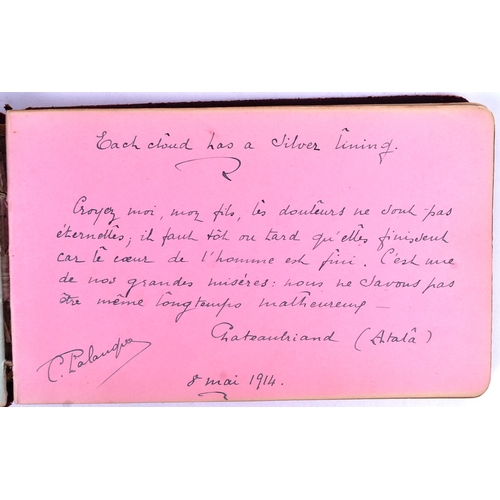 Each cloud has a silver lining.
Croyez moi, mon fils, les douleurs ne sont pas
éternelles; il faut tôt ou tard qu'elles finissent
car le cœur de l'homme est fini. C'est une
de nos grandes misères: nous ne savons pas
être même longtemps malheureux —
Chateaubriand (Atala)
C. Palanque
8 mai 1914.